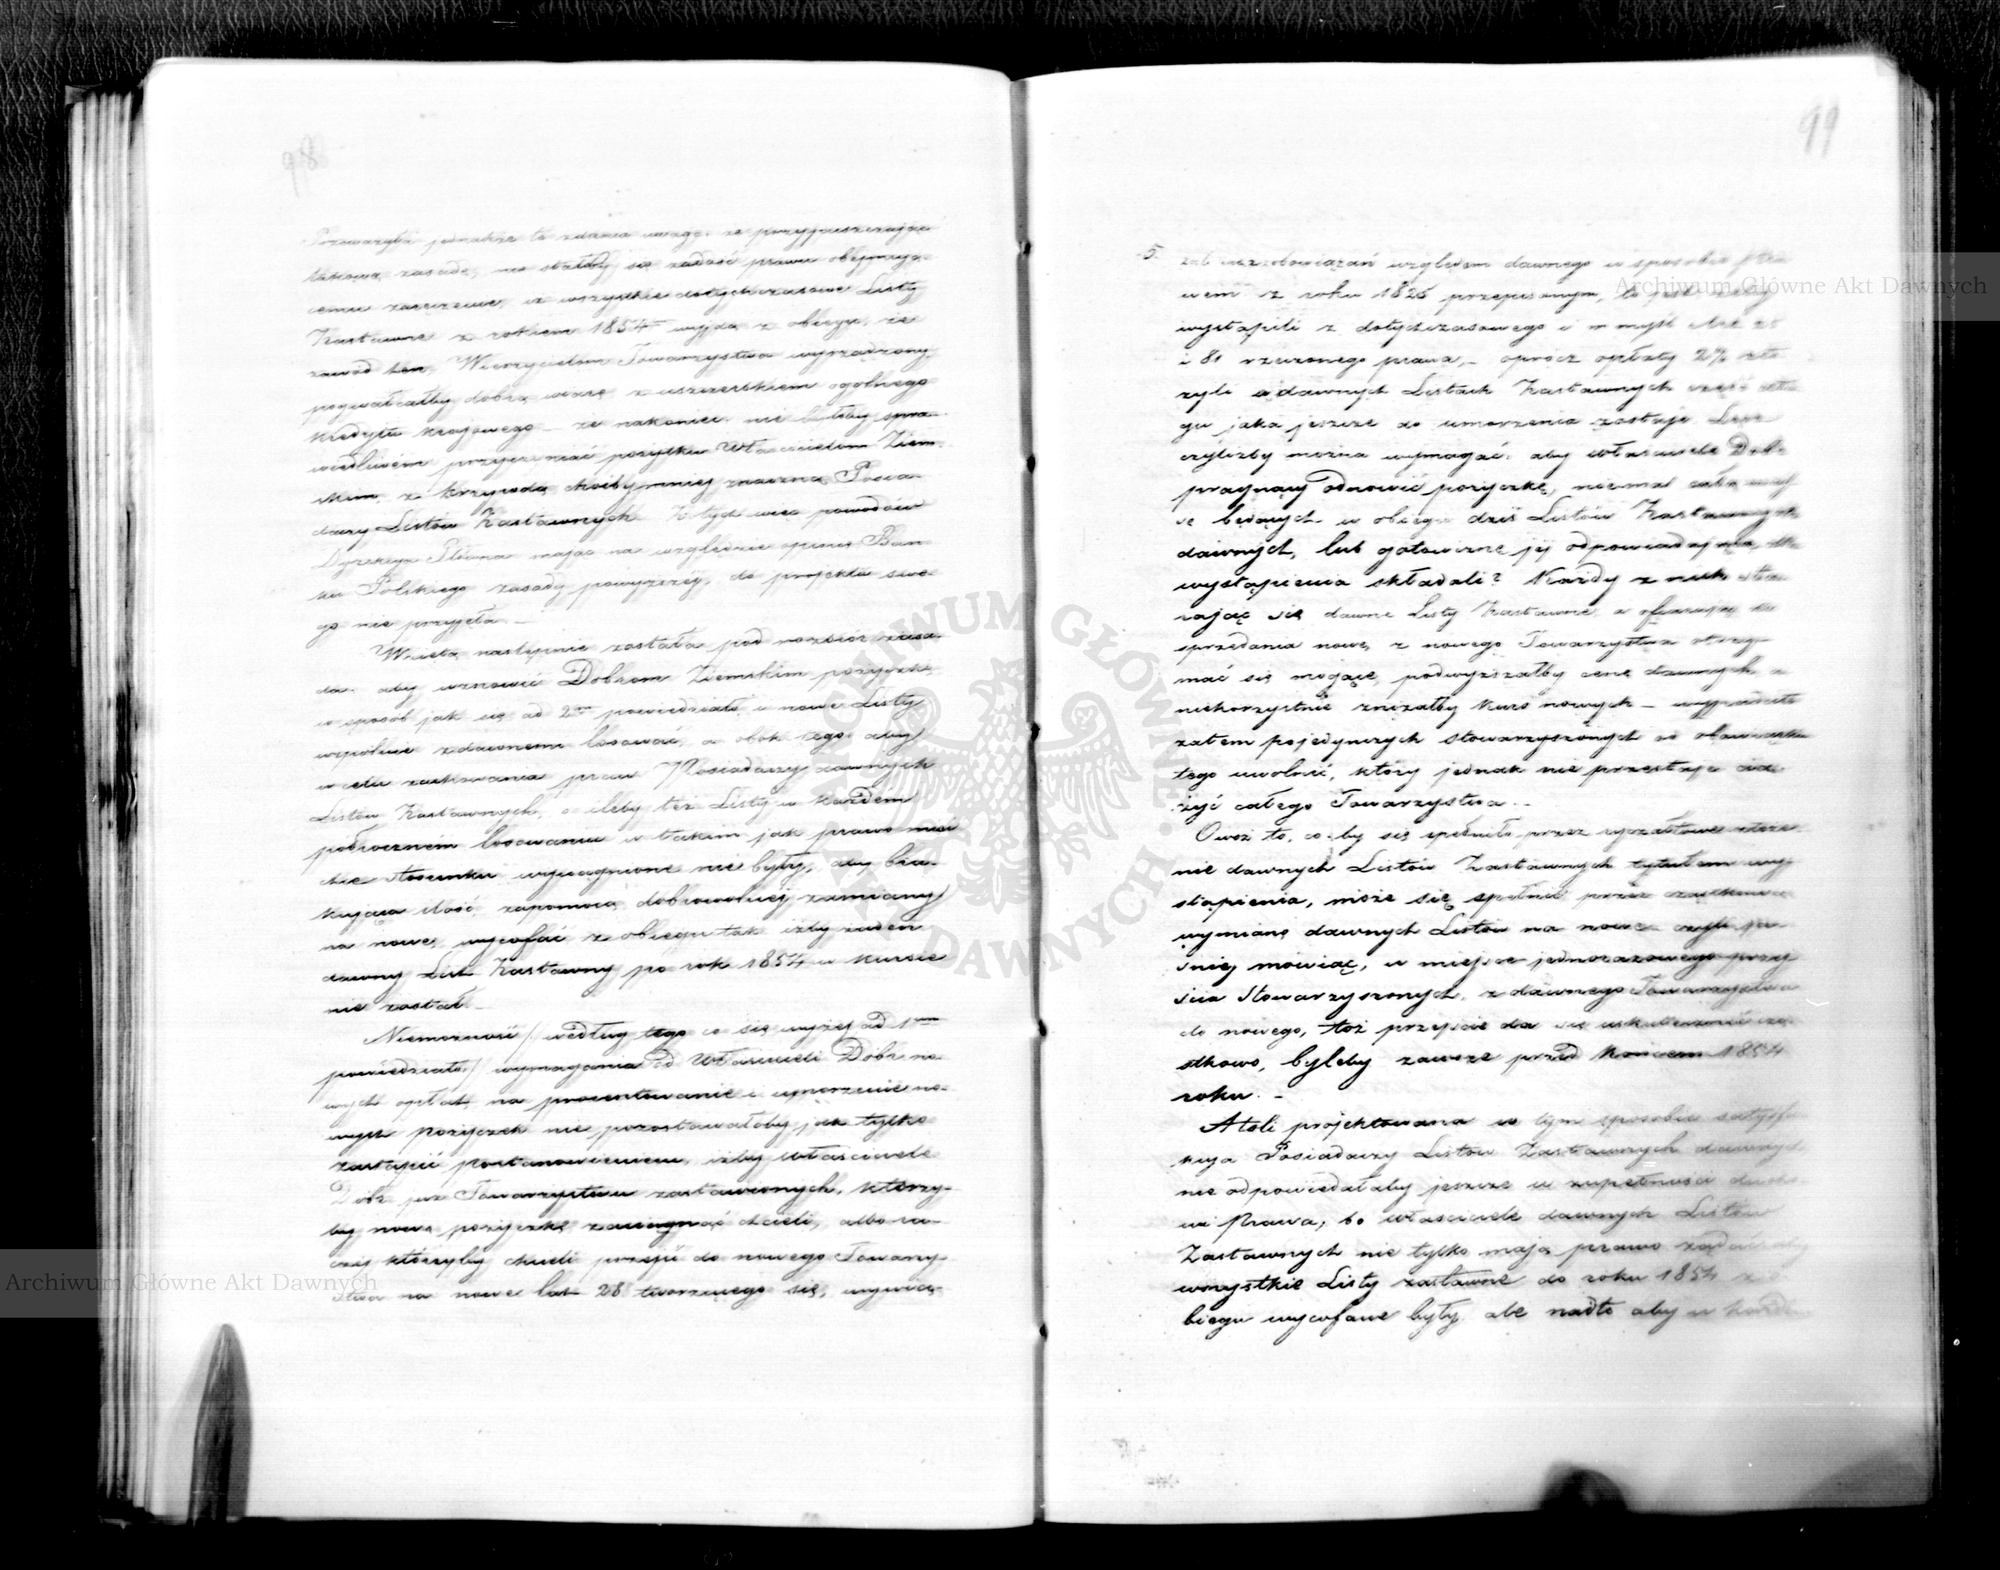 98
jednakże ta zdania uwagę, że przypuszczając
takową zasadę, nie stałoby się zadość prawu obejmują-
cemu zaręczenie, iż wszystkie dotychczasowe Listy
Zastawne z rokiem 1854 wyjdą z obiegu, że
zawód ten, Wierzycielom Towarzystwa wyrządzony,
pogwałcałby dobrą wiarę z uszczerbkiem ogólnego
kredytu krajowego – że nakoniec nie byłoby spra-
wiedliwem przyczyniać pożytku Właścicielom Ziem-
skim z krzywdą choćby mniej znaczną Posia-
daczy Listów Zastawnych. Z tych więc powodów
Dyrekcja Główna mając na względzie opinię Ban-
ku Polskiego zasady powyższej, do projektu swe-
go nie przyjęła. –
Wzięta następnie została pod rozbiór zasa-
da: aby wznowić Dobrom Ziemskim pożyczkę,
w sposób jak się ad 2um powiedziało, nowe Listy
wspólnie z dawnemi losować, a obok tego aby
w celu zachowania praw Posiadaczy dawnych
Listów Zastawnych, o ileby też Listy w każdem
półrocznem losowaniu w takim jak prawo mieć
chce stosunku wyciągnione nie były, aby bra-
kującą ilość, zapomocą dobrowolnej zamiany
na nowe, wycofać z obiegu tak iżby żaden
dawny List Zastawny po rok 1854 w kursie
nie został. –
Niemożność /: według tego co się wyżej ad 1um
powiedziało :/ wymagania od Właścicieli Dóbr no-
wych opłat, na procentowanie i umorzenie no-
wych pożyczek nie pozostawałoby jak tylko
zastąpić postanowieniem, iżby właściciele
Dóbr już Towarzystwu zastawionych, którzy-
by nową pożyczkę zaciągnąć chcieli, albo ra-
czej którzyby chcieli przejść do nowego Towarzy-
stwa na nowe lat 28 tworzącego się, wywią-
99
5.
zali się z zobowiązań względem dawnego w sposobie Pra-
wem z roku 1825 przepisanym, to jest żeby
wystąpili z dotychczasowego i w myśl Art.
i 81 rzeczonego prawa, – oprócz opłaty 2% zło-
żyli w dawnych Listach Zastawnych część
gu jaka jeszcze do umorzenia zostaje. Lecz
czyliżby można wymagać, aby właściciele Dóbr
pragnący odnowić pożyczkę, niemal całą
będących w obiegu dziś Listów Zastawnych
dawnych, lub gotowiznę jej odpowiadającą, dla
wystąpienia składali? Każdy z nich sta-
rając się dawne Listy Zastawne a ofiarując do
sprzedania nowe, z nowego Towarzystwa otrzy-
mać się mogące, podwyższałby cenę dawnych, a
niekorzystnie zniżałby kurs nowych –
zatem pojedynczych stowarzyszonych od obowiązku
tego uwolnić, który jednak nie przestaje cią-
żyć całego Towarzystwa. –
Owoż to, co-by się spełniło przez ryczałtowe złoże-
nie dawnych Listów Zastawnych tytułem wy-
stąpienia, może się spełnić przez cząstkową
wymianę dawnych Listów na nowe czyli ja-
śniej mówiąc, w miejsce jednorazowego przej-
ścia Stowarzyszonych, z dawnego Towarzystwa
do nowego, toż przejście da się uskutecznić czą-
stkowo, byleby zawsze przed końcem 1854
roku. –
Atoli projektowana w tym sposobie satysfa-
kcja Posiadaczy Listów Zastawnych dawnych
nie odpowiedałaby jeszcze w zupełności ducho-
wi Prawa, bo właściciele dawnych Listów
Zastawnych nie tylko mają prawo żądać aby
wszystkie Listy zastawne do roku 1854 z
biegu wycofane były, ale nadto aby w każdem
Archiwum Główne Akt Dawnych
Archiwum Główne Akt Dawnych
ARCHIWUM GŁÓWNE AKT DAWNYCH